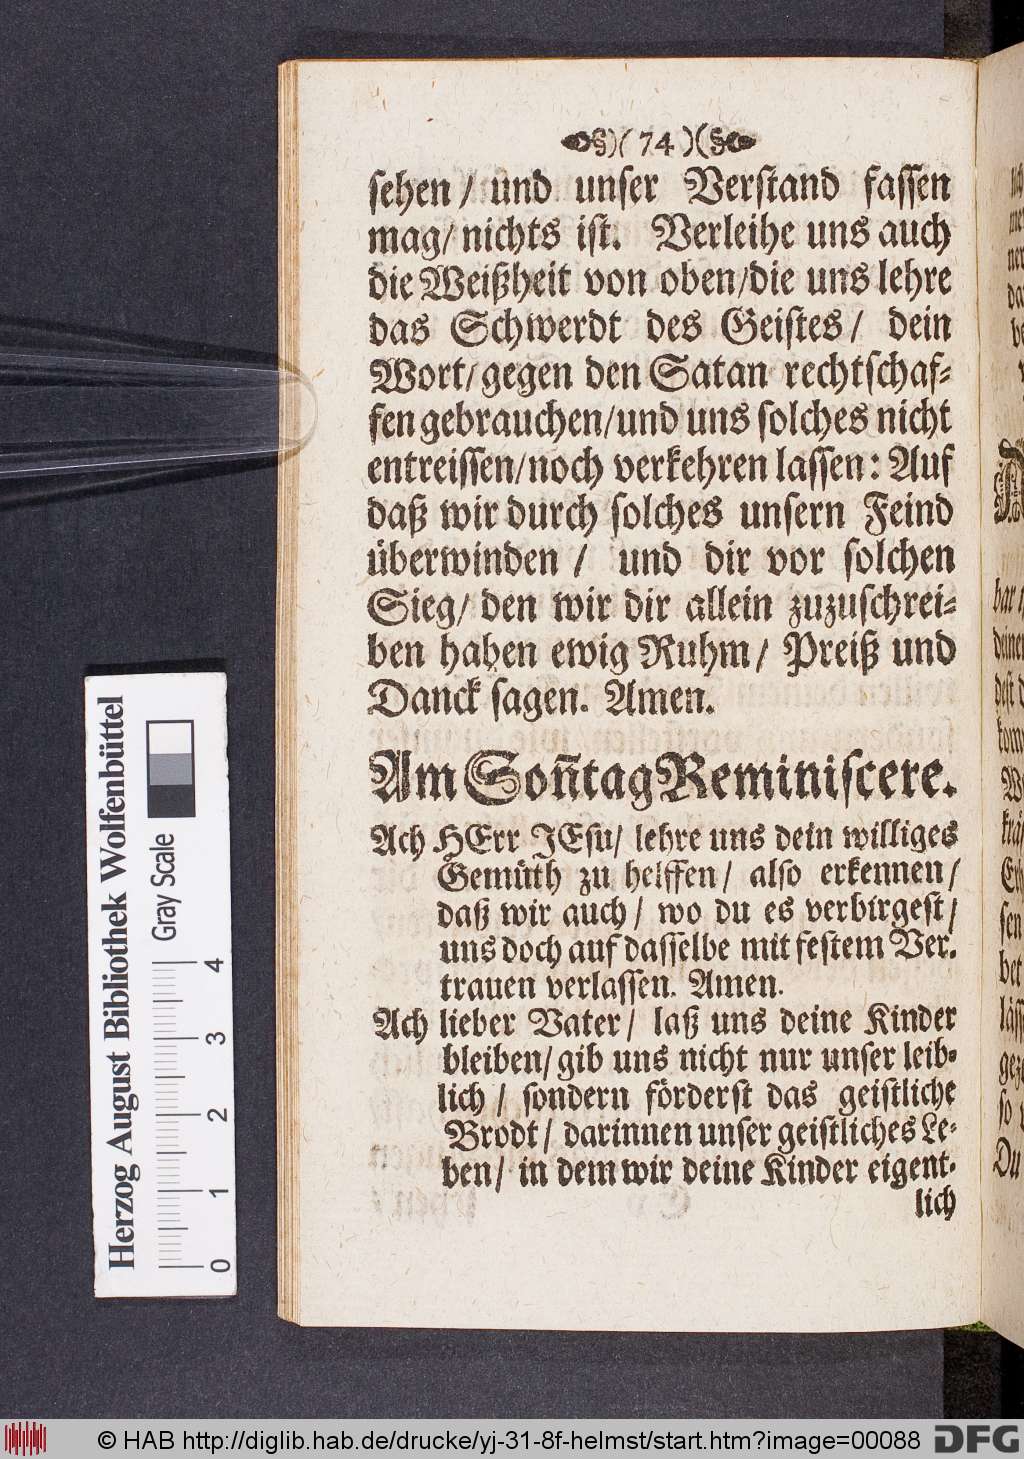 §)( 74 )(§
sehen / und unser Verstand fassen
mag/ nichts ist. Verleihe uns auch
die Weißheit von oben/die uns lehre
das Schwerdt des Geistes / dein
Wort/gegen den Satan rechtschaf-
fen gebrauchen/und uns solches nicht
entreissen/noch verkehren lassen: Auf
daß wir durch solches unsern Feind
überwinden / und dir vor solchen
Sieg/ den wir dir allein zuzuschrei-
ben haben ewig Ruhm/ Preiß und
Danck sagen. Amen.
Am Soñtag Reminiscere.
Ach HErr JEsu/ lehre uns dein williges
Gemüth zu helffen/ also erkennen/
daß wir auch/ wo du es verbirgest/
uns doch auf dasselbe mit festem Ver.
trauen verlassen. Amen.
Ach lieber Vater/ laß uns deine Kinder
bleiben/ gib uns nicht nur unser leib-
lich / sondern förderst das geistliche
Brodt/ darinnen unser geistliches Le-
ben/ in dem wir deine Kinder eigent-
lich
Herzog August Bibliothek Wolfenbüttel
Gray Scale
0 1 2 3 4
© HAB http://diglib.hab.de/drucke/yj-31-8f-helmst/start.htm?image=00088
DFG